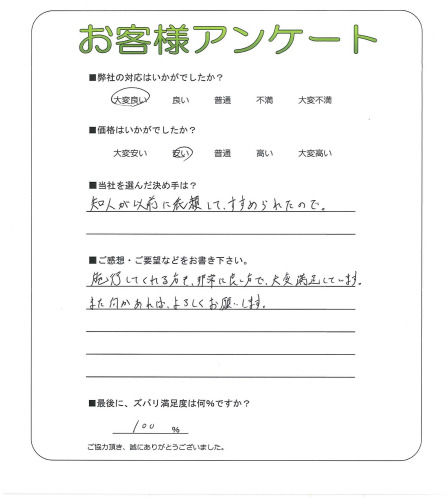 お客様アンケート
■弊社の対応はいかがでしたか？
大変良い 良い 普通 不満 大変不満
■価格はいかがでしたか？
大変安い 安い 普通 高い 大変高い
■当社を選んだ決め手は？
知人が以前に依頼して、すすめられたので。
■ご感想・ご要望などをお書き下さい。
施行してくれる方も、非常に良い方で、大変満足しています。
また何かあれば、よろしくお願いします。
■最後に、ズバリ満足度は何％ですか？
100 ％
ご協力頂き、誠にありがとうございました。